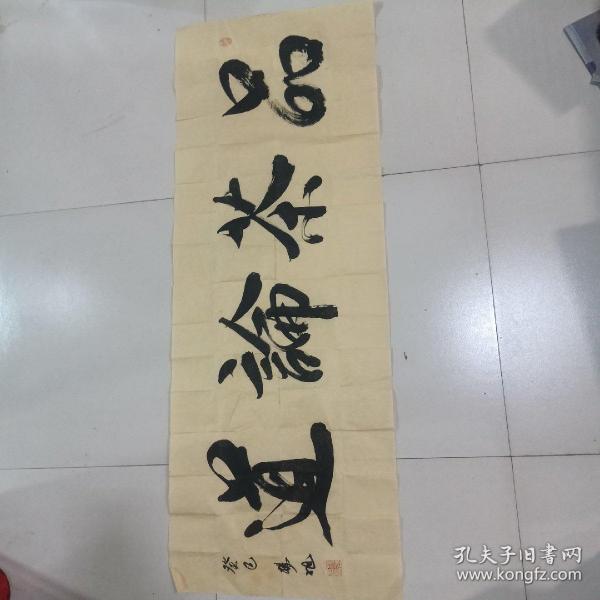 品茶論道
癸巳
孔夫子旧书网
www.kongfz.com